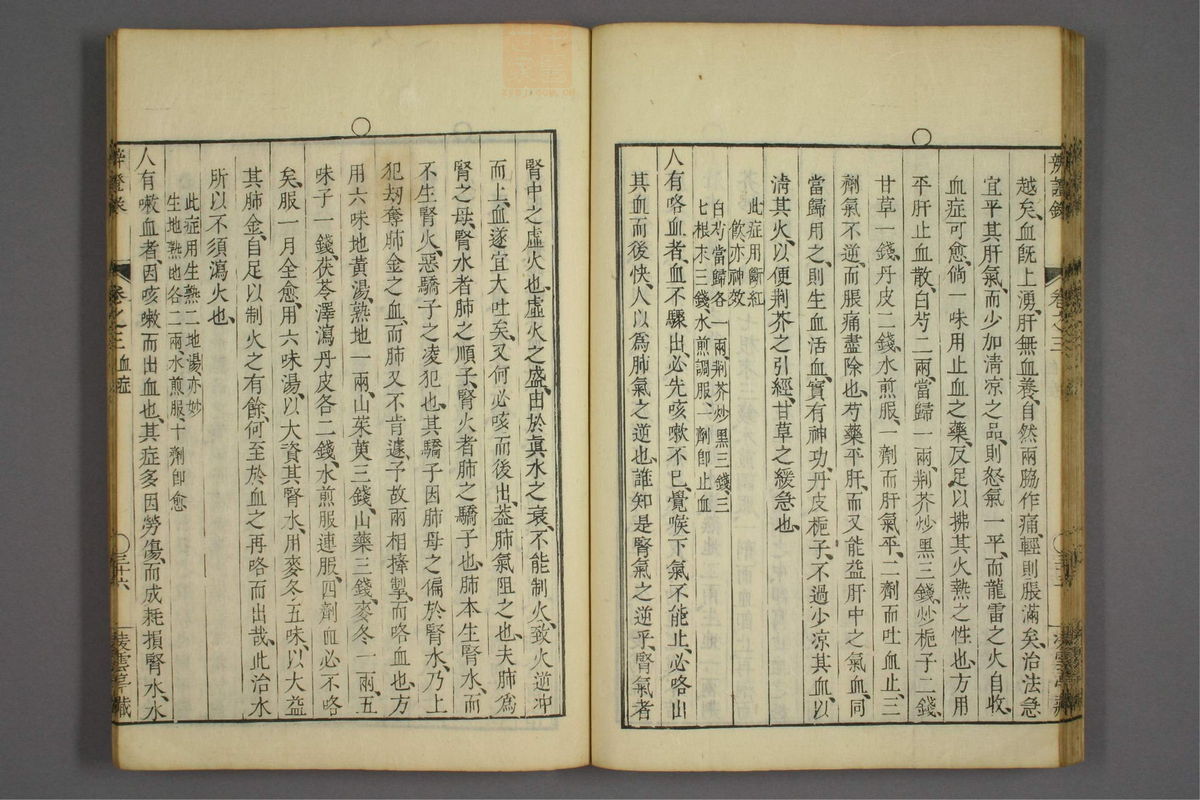 越矣、血旣上湧、肝無血養、自然兩脇作痛、輕則脹滿矣、治法急
宜平其肝氣、而少加淸凉之品、則怒氣一平、而龍雷之火自收、
血症可愈、倘一味用止血之藥、反足以拂其火熱之性也、方用
平肝止血散、白芍二兩、當歸一兩、荆芥炒黑三錢、炒梔子二錢、
甘草一錢、丹皮二錢、水煎服、一劑而肝氣平、二劑而吐血止、三
劑氣不逆、而脹痛盡除也、芍藥平肝、而又能益肝中之氣血、同
當歸用之、則生血活血、實有神功、丹皮梔子、不過少凉其血、以
淸其火、以便荆芥之引經、甘草之緩急也、
此症用斷紅
飲亦神效
白芍當歸各一兩、荆芥炒黑三錢、三
七根末三錢、水煎調服、一劑卽止血
人有咯血者、血不驟出、必先咳嗽不已、覺喉下氣不能止、必咯出
其血而後快、人以爲肺氣之逆也、誰知是腎氣之逆乎、腎氣者
腎中之虛火也、虛火之盛、由於眞水之衰、不能制火、致火逆冲
而上、血遂宜大吐矣、又何必咳而後出、蓋肺氣阻之也、夫肺爲
腎之母、腎水者肺之順子、腎火者肺之驕子也、肺本生腎水、而
不生腎火、惡驕子之凌犯也、其驕子因肺母之偏於腎水、乃上
犯劫奪肺金之血、而肺又不肯遽予、故兩相捧掣、而咯血也、方
用六味地黃湯、熟地一兩、山茱萸三錢、山藥三錢、麥冬一兩、五
味子一錢、茯苓澤瀉丹皮各二錢、水煎服、連服、四劑血必不咯
矣、服一月全愈、用六味湯、以大資其腎水、用麥冬五味、以大益
其肺金、自足以制火之有餘、何至於血之再咯而出哉、此治水
所以不須瀉火也、
此症用生熟二地湯、亦妙
生地熟地各二兩水煎服、十劑卽愈
人有嗽血者、因咳嗽而出血也、其症多因勞傷、而成耗損腎水、水
卷之三 血症
三十六
凌雲亭藏